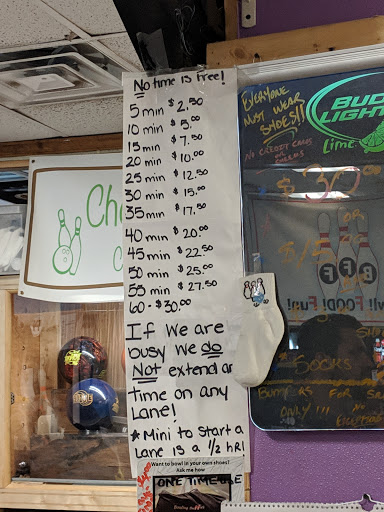 No time is Free!
5 min $2.50
10 min $5.00
15 min $7.50
20 min $10.00
25 min $12.50
30 min $15.00
35 min $17.50
40 min $20.00
45 min $22.50
50 min $25.00
55 min $27.50
60 - $30.00
If we are
busy we do
Not extend
time on any
Lane!
* Mini to start a
Lane is a 1/2 hR!
Want to bowl in your own shoes?
Ask me how
ONE TIME
Ch
EVERYONE
MUST WEAR
SHOES!!
NO CREDIT CARDS
BUD
LIGHT
Lime
OR
B F F
FOOD! Fun!
SOCKS
ONLY!!!